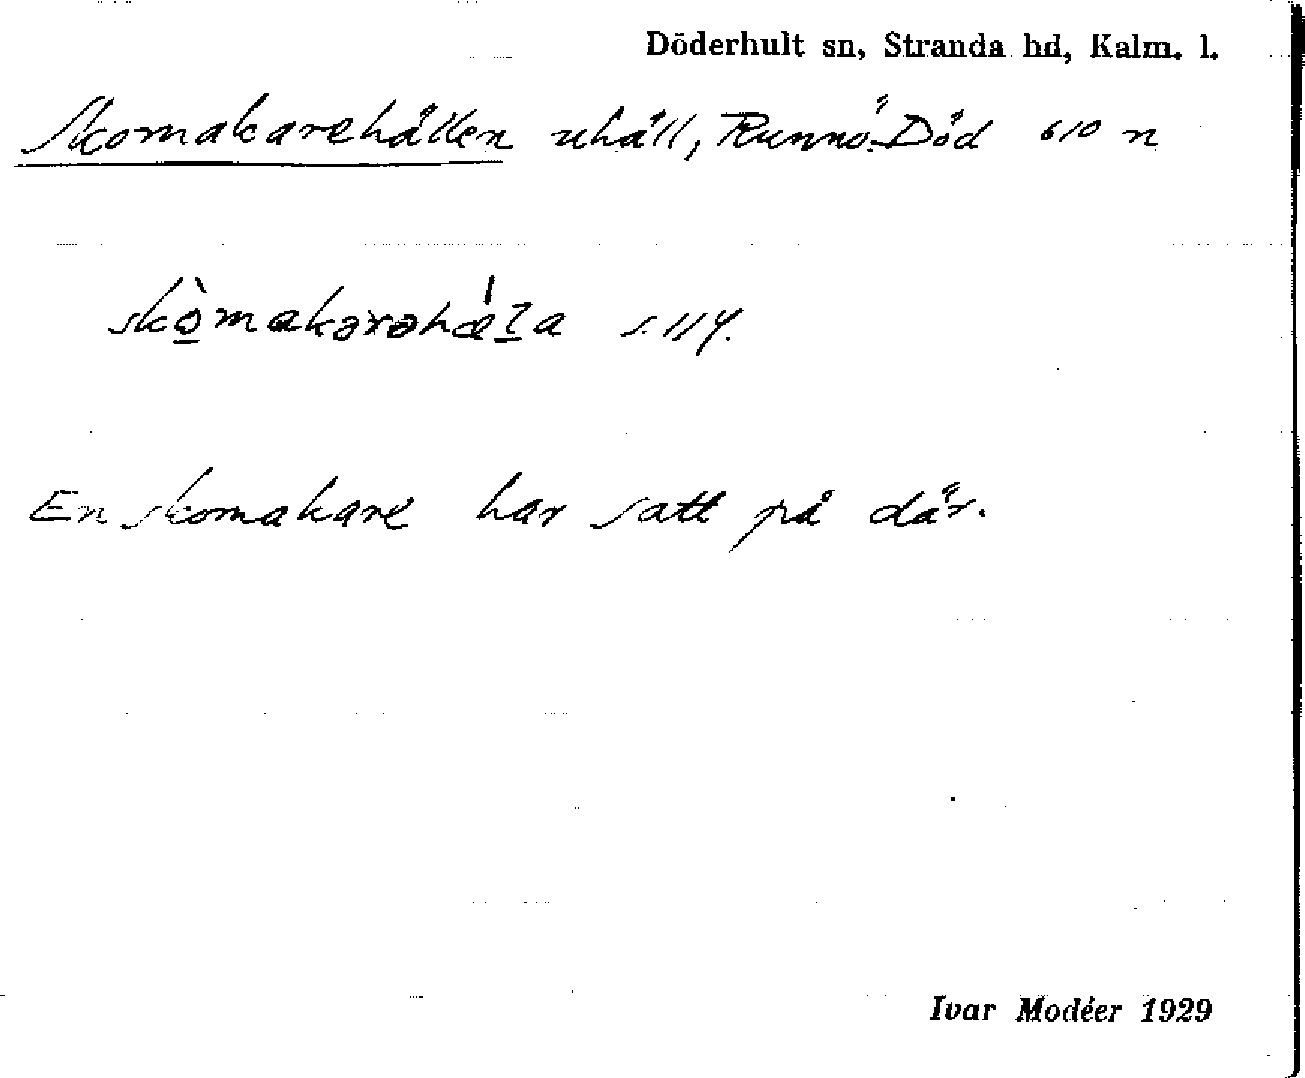 Döderhult sn, Stranda hd, Kalm. l.
Skomakarehällen uhäll, Runnö. Död 610 n
skòmakərəhǽla s. 114.
En skomakare har satt på där.
Ivar Modéer 1929